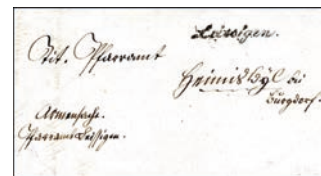 Leissigen.
Tit. Pfarramt
Heimiswyl bei
Burgdorf.
Armensache.
Pfarramt Leissigen.